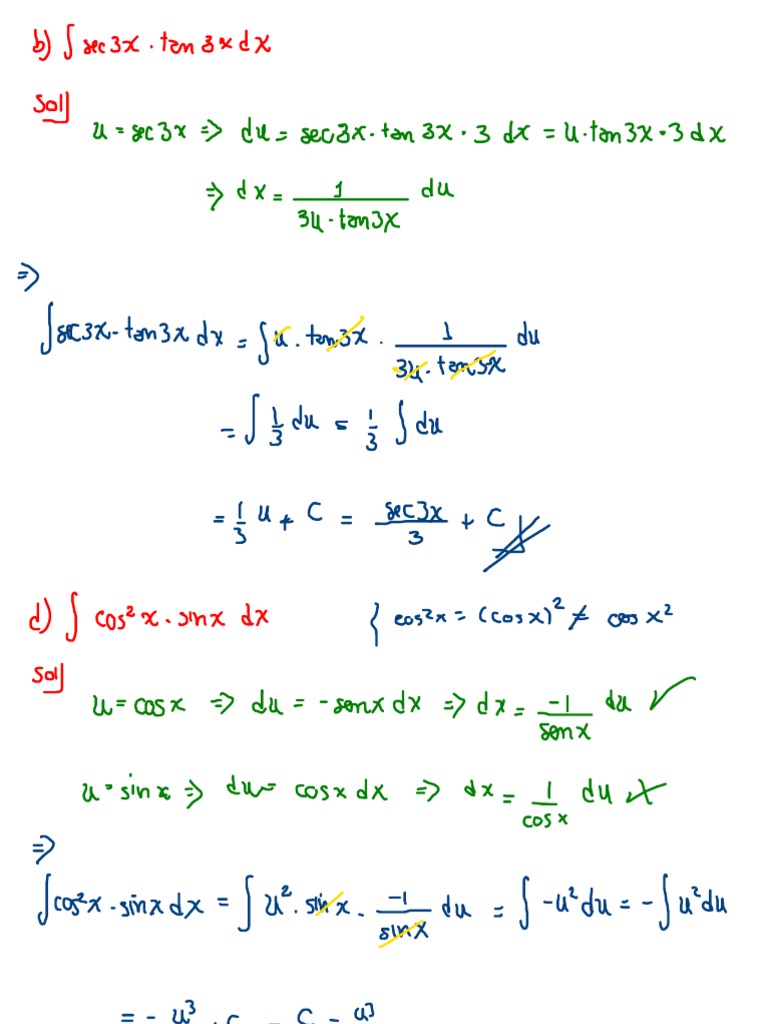 b) ∫ sec3x · tan3x dx
Sol
u = sec3x => du = sec3x · tan3x · 3 dx = u · tan3x · 3 dx
=> dx = 1/(3u · tan3x) du
=>
∫ sec3x · tan3x dx = ∫ u · tan3x · 1/(3u · tan3x) du
= ∫ 1/3 du = 1/3 ∫ du
= 1/3 u + C = sec3x/3 + C
d) ∫ cos²x · sinx dx { cos²x = (cosx)² ≠ cos x²
Sol
u = cosx => du = -senx dx => dx = -1/senx du ✓
u = sinx => du = cosx dx => dx = 1/cosx du ✗
=>
∫ cos²x · sinx dx = ∫ u² · sinx · -1/sinx du = ∫ -u² du = - ∫ u² du
= - u³